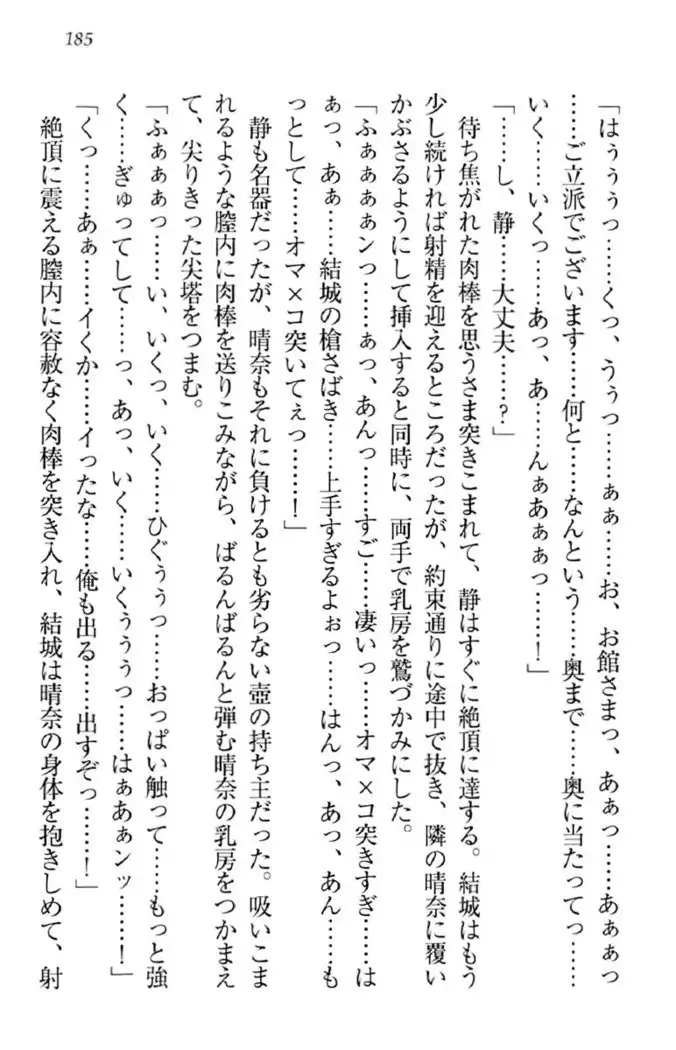 185
「はぅぅぅっ……くっ、うぅっ……ぁぁ……お、お館さまっ、あぁっ……あぁぁっ
……ご立派でございます……何と……なんという……奥まで……奥に当たってっ……
いく……いくっ……あっ、あ……んぁあぁぁっ……！」
「……し、静……大丈夫……？」
待ち焦がれた肉棒を思うさま突きこまれて、静はすぐに絶頂に達する。結城はもう
少し続ければ射精を迎えるところだったが、約束通りに途中で抜き、隣の晴奈に覆い
かぶさるようにして挿入すると同時に、両手で乳房を鷲づかみにした。
「ふぁぁぁぁンっ……ぁっ、あんっ……すご……凄いっ……オマ×コ突きすぎ……は
ぁっ、あぁ……結城の槍さばき……上手すぎるよぉっ……はんっ、あっ、あん……も
っとして……オマ×コ突いてぇっ……！」
静も名器だったが、晴奈もそれに負けるとも劣らない壺の持ち主だった。吸いこま
れるような膣内に肉棒を送りこみながら、ばるんばるんと弾む晴奈の乳房をつかまえ
て、尖りきった尖塔をつまむ。
「ふぁぁぁっ……い、いくっ、いく……ひぐぅぅっ……おっぱい触って……もっと強
く……ぎゅってして……っ、あっ、いく……いくぅぅぅっ……はぁあぁンッ……！」
「くっ……あぁ……イくか……イったな……俺も出る……出すぞっ……！」
絶頂に震える膣内に容赦なく肉棒を突き入れ、結城は晴奈の身体を抱きしめて、射